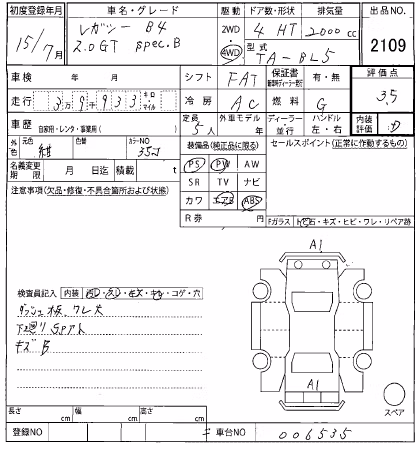 初度登録年月
車名・グレード
駆動
ドア数・形状
排気量
出品NO.
15年7月
レガシー B4
2.0GT spec.B
2WD
4WD
4 HT
2000cc
型式
TA-BL5
2109
車検 年 月
シフト
FAT
保証書
有・無
評価点
3.5
走行
3万9千933
キロ
マイル
冷房
AC
燃料
G
車歴
自家用・レンタ・事業用( )
定員
5人
外車モデル
年
ディーラー・並行
ハンドル
左・右
内装評価
外色
元色
紺
色替
カラーNO
35J
装備品(純正品に限る)
セールスポイント(正常に作動するもの)
PS PW AW
名義変更期限
月 日迄
積載
t
SR TV ナビ
注意事項(欠品・修復・不具合箇所および状態)
カワ エアB ABS
R券
円
Fガラス
トビ石・キズ・ヒビ・ワレ・リペア跡
A1
検査員記入
内装
コゲ・穴
ダッシュ板、ワレ大
下廻り Sアト
キズB
A1
スペア
長さ cm
幅 cm
高さ cm
登録NO
車台NO
006535